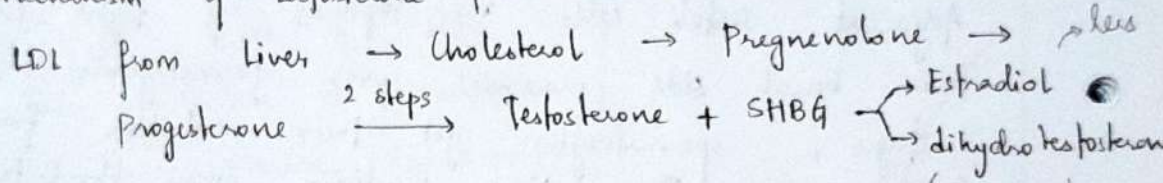 LDL from Liver → Cholesterol → Pregnenolone → less
Progesterone 2 steps → Testosterone + SHBG → Estradiol
→ dihydrotestosteron